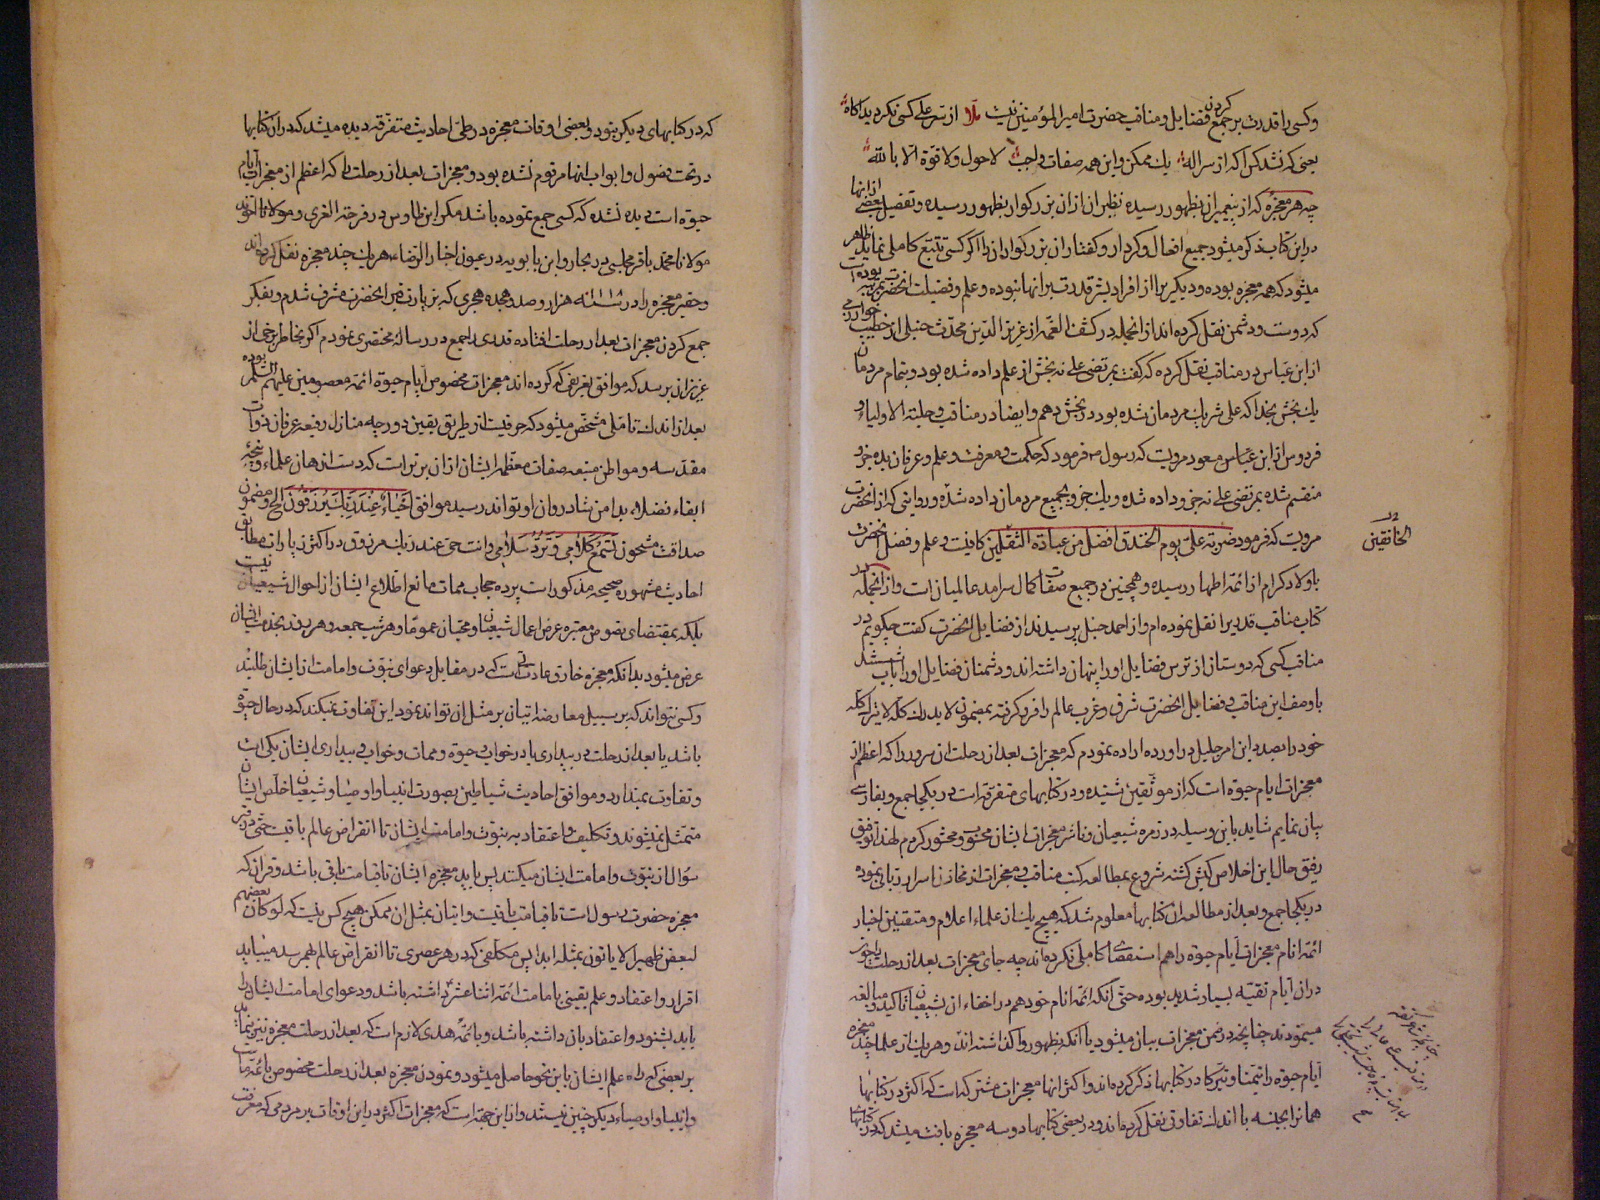 وکسی را قدرت بر جمع کردن فضایل و مناقب حضرت امیرالمؤمنین نیست ملا از سر علی کسی نکرده بد آگاه
یعنی که نشد کس آگه از سر اله یک ممکن و این همه صفات واجب لا حول ولا قوة الا بالله
چه هر معجزه که از پیغمبران بظهور رسیده نظیر آن از آن بزرکوار بظهور رسیده و تفصیل بعضی از آنها
در این کتاب ذکر میشود جمیع افعال و کردار و کفتار آن بزرکوار انرا اکر کسی تتبع کاملی نماید ظاهر
میشود که همه معجزه بوده و دیکریرا از افراد بشر قدرت بر آنها نبوده و علم و فضیلت آنحضرت بمرتبه بوده است
که دوست و دشمن نقل کرده اند از انجمله در کشف الغمه از عزیز الدین محدث حنبلی از خطیب خوارزمی
از ابن عباس در مناقب نقل کرده که کفت بمرتضی علی نه بخش از علم داده شده بود و بتمام مردمان
یک بخش بخدا که علی شریک مردمان شده بود در بخش دهم و ایضا در مناقب و حلیة الاولیاء و
فردوس از ابن عباس مسعود مرویست که رسول ص فرمود که حکمت و معرفت و علم و عرفان بده جزو
منقسم شده بمرتضی علی نه جزو داده شده و یک جزو بجمیع مردمان داده شده و روایتی که از آنحضرت
مرویست که فرمود ضربة علی یوم الخندق افضل من عبادة الثقلین کافیست و علم و فضل آنحضرت
باولاد کرام از ائمه اطهار رسیده و همچنین در جمیع صفات کمال سرامد عالمیان است و از انجمله در
کتاب مناقب قدیر انقل نموده ام و از احمد حنبل پرسیدند از فضایل آنحضرت کفت چکویم در
مناقب کسی که دوستان از ترس فضایل او را پنهان داشته اند و دشمنان فضایل او را
با وصف این مناقب و فضایل آنحضرت شرق و غرب عالم را فرو کرفته بمضمون لا یدرک کله لا یترک کله
خود را بصدد این امر جلیل در اورده اراده نمودم که معجزات بعد از رحلت ان سرور را که اعظم از
معجزات ایام حیوة است که از موثقین شنیده و در کتابهای متفرقه است در یکجا جمع و بفارسی
بیان نمایم شاید باین وسیله در زمره شیعیان و ناشر معجزات ایشان محسوب و محشور کردم لهذا توفیق
رفیق حال این اخلاص کیش کشته شروع بمطالعه کتب مناقب و معجزات از مخازن اسرار ربانی نموده
در یکجا جمع و بعد از مطالعه ان کتابها معلوم شد که هیچ یک از علماء اعلام و متقنین اخبار
ائمه انام معجزات ایام حیوة را هم استقصای کاملی نکرده اند چه جای معجزات بعد از رحلت را چون
در ان ایام تقیه بسیار شدید بوده حتی آنکه ائمه انام خود هم در اخفاء از شیعیان تاکید و مبالغه
میفمودند چنانچه در ضمن معجزات بیان میشود یا آنکه بظهور وا کذاشته اند و هر یک از علما چند معجزه
ایام حیوة را تیمنا و تبرکا در کتابها ذکر کرده اند و اکثر انها معجزات مشترکه است که اکثر در کتابها
همانرا بجنسه با اندک تفاوتی نقل کرده اند و در بعضی کتابها دو سه معجزه یافت میشد که در کتابها
الخافقین
که در کتابهای دیکر نبود و بعضی اوقات معجزه در طی احادیث متفرقه دیده میشد که در ان کتابها
در تحت فصول و ابواب انها مرقوم نشده بود و معجزات بعد از رحلت را که اعظم از معجزات ایام
حیوة است دیده نشده که کسی جمع نموده باشد مکر ابن طاوس در فرحة الغری و مولانا آخوند
مولانا محمد باقر مجلسی در بحار و ابن بابویه در عیون اخبار الرضاء هر یک چند معجزه نقل کرده اند
و حقیر معجزه را در ۱۱۱۸ سنه هزار و صد و هجده هجری که بزیارت قبر آنحضرت مشرف شدم و بفکر
جمع کردن معجزات بعد از رحلت افتاده قدری را جمع در رساله مختصری نمودم اکر بخاطر برخی از
عزیزان برسد که موافق تعریفی که کرده اند معجزات مخصوص ایام حیوة ائمه معصومین علیهم السلم بوده
بعد از اندک تاملی مشخص میشود که حرفیست از طریق یقین دور چه منازل رفیعه عرفان ذوات
مقدسه و مواطن منیعه صفات معظمه ایشان از ان برتر است که دست اذهان علماء و
ابقاء فضلاء بدامن شادروان او تواند رسید موافق احیاء عند ربک یرزقون الخ و مضمون
صداقت مشحون تسمع کلامی و ترد سلامی و انت حی عند ربک مرزوق در اکثر زیارات مطابق
احادیث مشهوره صحیحه مذکور است پرده حجاب ممات مانع اطلاع ایشان از احوال شیعیان نیست
بلکه بمقتضای نصوص معتبره عرض اعمال شیعیان و محبان عموما و هر شب جمعه و هر روز بخدمت ایشان
عرض میشود بدانکه معجزه خارق عادت است که در مقابل دعوای نبوت و امامت از ایشان طلبند
و کسی نتواند که بر سبیل معارضه اتیان بر مثل ان تواند نمود این تفاوت نمیکند که در حال حیوة
باشد یا بعد از رحلت در بیداری یا در خواب چه حیوة و ممات و خواب و بیداری ایشان یکی است
و تفاوت ندارد و موافق احادیث شیاطین بصورت انبیا و اوصیا و شیعیان خلص ایشان
متمثل نمیشوند و تکلیف و اعتقاد به نبوت و امامت ایشان تا انقراض عالم باقیست حتی در قبر
سؤال از نبوت و امامت ایشان میکنند پس باید معجزه ایشان تا قیامت باقی باشد و قران که
معجزه حضرت رسول است تا قیامت باقیست و اتیان بمثل ان ممکن هیچ کس نیست که لو کان بعضهم
لبعض ظهیرا لا یاتون بمثله ابدا پس مکلفی که در هر عصری تا انقراض عالم بهم رسد میباید
اقرار و اعتقاد و علم یقینی بامامت ائمه اثناعشر داشته باشد و دعوای امامت ایشان را
باید بشنود و اعتقاد بان داشته باشد و بائمه هدی لازم است که بعد از رحلت معجزه نیز بنمایند
بر بعضی که راه علم ایشان باین نحو حاصل میشود و نمودن معجزه بعد از رحلت مخصوص بائمه ماست
و انبیا و اوصیاء دیکر چنین نیستند و از این جهة است که معجزات اکثر در این اوقات بر مردمی که معرفت